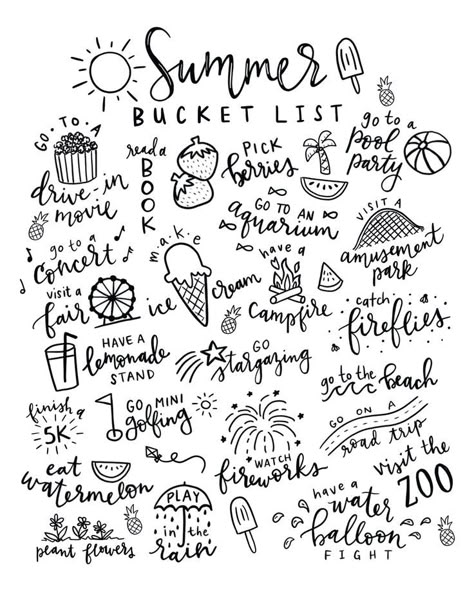 Summer
BUCKET LIST
GO TO A
drive-in
movie
read a
BOOK
PICK
berries
go to a
pool
party
GO TO AN
aquarium
VISIT A
amusement
park
go to a
concert
make
ice cream
have a
campfire
visit a
fair
catch
fireflies
HAVE A
lemonade
STAND
GO
stargazing
go to the beach
finish a
5K
GO MINI
golfing
WATCH
fireworks
GO ON A
road trip
eat
watermelon
visit the
ZOO
PLAY
in the
rain
have a
water
balloon
FIGHT
plant flowers